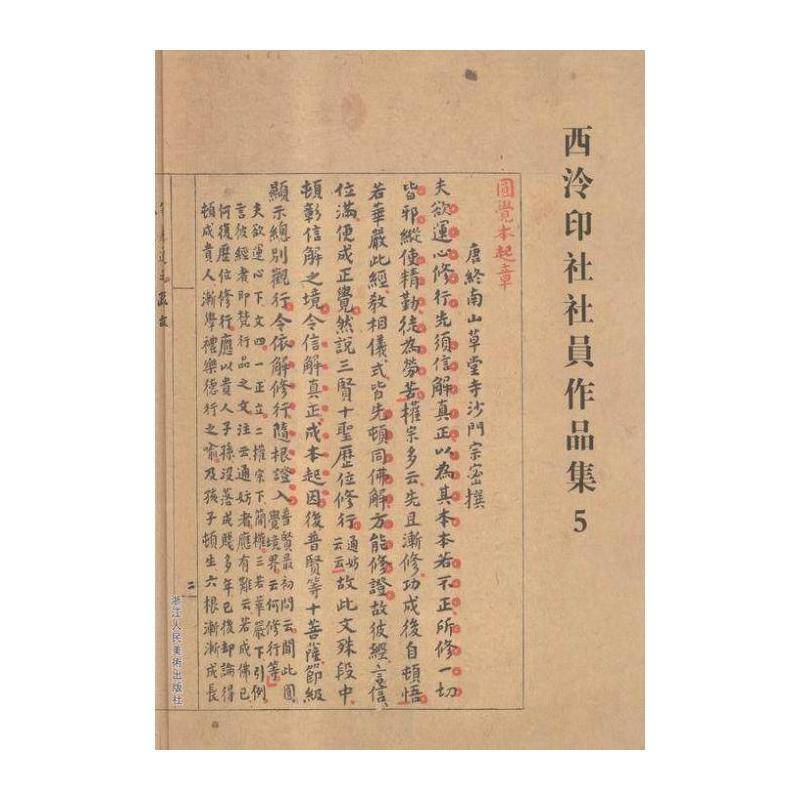 西泠印社社員作品集5
圓覺本起章
唐終南山草堂寺沙門宗密撰
夫欲運心修行先須信解真正以為其本本若不正所修一切
皆邪縱使精勤徒為勞苦權宗多云先且漸修功成後自頓悟
若華嚴此經教相儀式皆先頓同佛解方能修證故彼經言信
位滿便成正覺然說三賢十聖歷位修行云云通妨故此文殊段中
頓彰信解之境令信解真正成本起因後普賢等十菩薩節級
顯示總別觀行令依解修行隨根證入普賢最初問云聞此圓
覺境界云何修行等
夫欲運心下文四一正立二權宗下簡權三若華嚴下引例
言彼經者即梵行品之文注云通妨者應有難云若成佛已
何復歷位修行應以貴人子孫沒落成賤多年已後却論得
頓成貴人漸學禮樂德行之喻及孩子頓生六根漸漸成長
二
浙江人民美術出版社